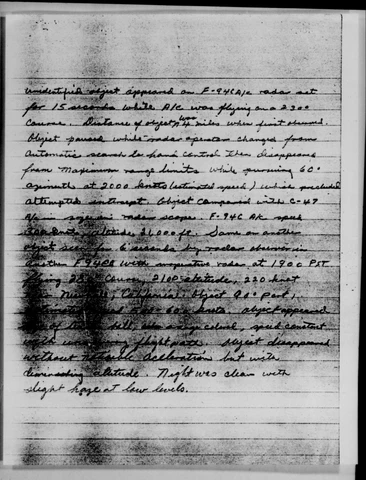 unidentified object appeared on F-94C A/c radar set
for 15 seconds while A/C was flying on a 230°
Course. Distance of object was 4 miles when first observed.
Object paused while radar operator changed from
automatic search to hand control then disappeared
from maximum range limits while pursuing 60°
azimuth at 2000 knots (estimated speed) which precluded
attempted intercept. Object compared with C-47
A/c in size on radar scope. F-94C A/C speed
altitude 21,000 ft. Same or another
object seen for 6 seconds by radar observer in
another F-94 with inoperative radar at 1900 PST
flying Course, altitude, 220 knot
California. Object 90° Port,
knots. Object appeared
speed constant
with flight path. Object disappeared
without noticable declaration but with
diminishing altitude. Night was clear with
slight haze at low levels.